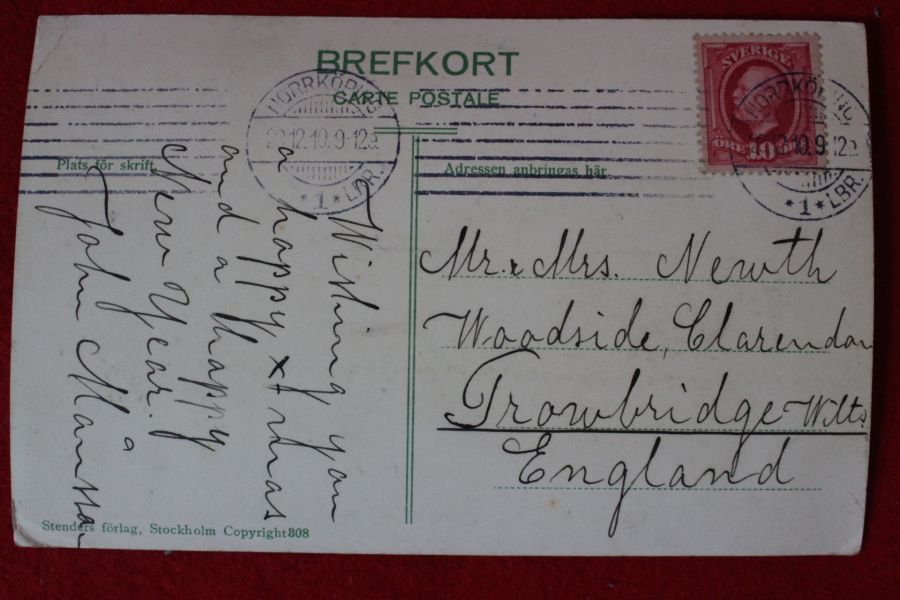 BREFKORT
CARTE POSTALE
Plats för skrift.
Adressen anbringas här.
SVERIGE
ÖRE 10 ÖRE
NORRKÖPING
12.10.9-12
* 1 * LBR.
NORRKÖPING
10.9-12
* 1 * LBR.
Wishing you
a happy xmas
and a happy
New Year.
John Månsson
Mr. & Mrs. Newth
Woodside, Clarendon
Trowbridge Wilts
England
Stenders förlag, Stockholm Copyright 808